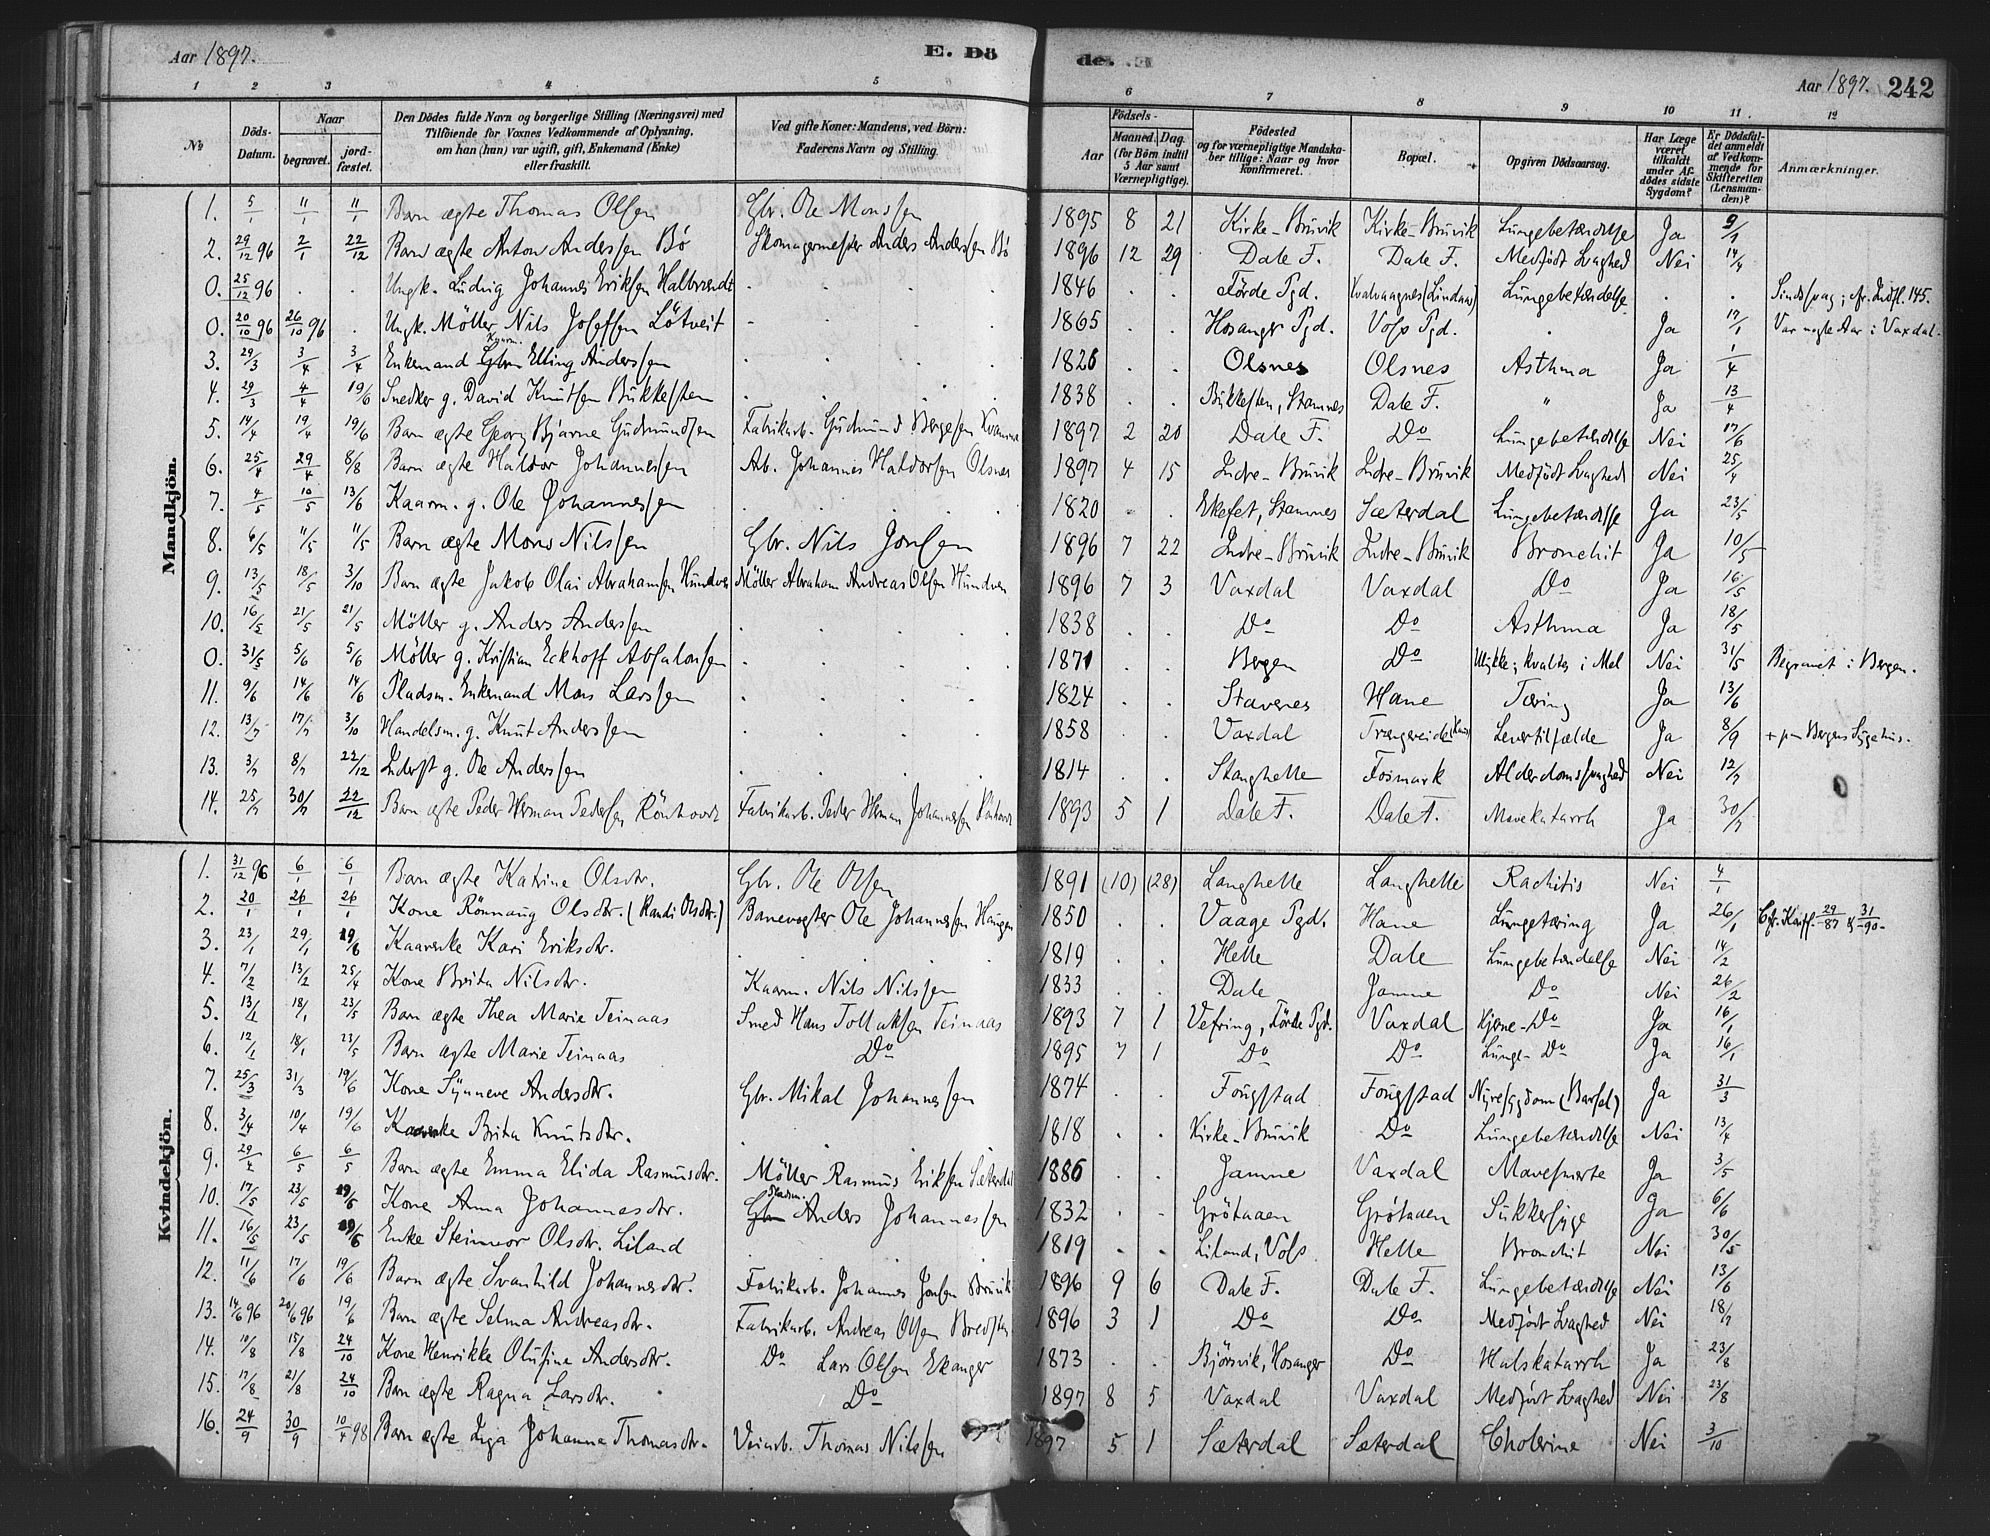 Aar 1897. E. Dö
de. Aar 1897. 242
1 2 3 4 5 6 7 8 9 10 11 12
№ Döds-Datum. Naar begravet. jordfæstet. Den Dödes fulde Navn og borgerlige Stilling (Næringsvei) med Tilföiende for Voxnes Vedkommende af Oplysning, om han (hun) var ugift, gift, Enkemand (Enke) eller fraskilt. Ved gifte Koner: Mandens, ved Börn: Faderens Navn og Stilling. Födsels- Aar Maaned. Dag. (for Börn indtil 5 Aar samt Værnepligtige). Födested og for værnepligtige Mandskaber tillige: Naar og hvor konfirmeret. Bopæl. Opgiven Dödsaarsag. Har Læge været tilkaldt under Afdödes sidste Sygdom? Er Dödsfaldet anmeldt af Vedkommende for Skifteretten (Lensmanden)? Anmærkninger.
Mandkjön.
1. 5/1 11/1 11/1 Barn ægte Thomas Olsen Gbr. Ole Monssen 1895 8 21 Kirke-Bruvik Kirke-Bruvik Lungebetændelse Ja 9/1
2. 29/12 96 2/1 22/12 Barn ægte Anton Anderssen Bö Skomagermester Anders Anderssen Bö 1896 12 29 Dale F. Dale F. Medfödt Svaghed Nei 14/4
0. 25/12 96 . . Ungk. Ludvig Johannes Eriksen Halbrendt . 1846 . . Förde Pgd. Kvalvaagnes (Lindaas) Lungebetændelse . . Sindssvag; cfr. Indfl. 145.
0. 20/10 96 26/10 96 . Ungk. Möller Nils Josefsen Lötveit . 1865 . . Hosanger Pgd. Voss Pgd. . Ja 17/1 Var nogle Aar i Vaxdal.
3. 29/3 3/4 3/4 Enkemand Kaarm. Elling Anderssen . 1826 . . Olsnes Olsnes Asthma Ja 1/4
4. 29/3 4/4 19/6 Snedker g. David Knutsen Bukkesten . 1838 . . Bukkesten, Stamnes Dale F. " Ja 13/4
5. 14/4 19/4 19/6 Barn ægte Georg Bjarne Gudmundsen Fabrikarb. Gudmund Bergesen Kvamme 1897 2 20 Dale F. Do Lungebetændelse Nei 17/6
6. 25/4 29/4 8/8 Barn ægte Haldor Johannessen Ab. Johannes Haldorsen Olsnes 1897 4 15 Indre-Bruvik Indre-Bruvik Medfödt Svaghed Nei 25/4
7. 4/5 10/5 13/6 Kaarm. g. Ole Johannessen . 1820 . . Ekeset, Stamnes Sæterdal Lungebetændelse Ja 23/5
8. 6/5 11/5 11/5 Barn ægte Mons Nilssen Gbr. Nils Jonsen 1896 7 22 Indre-Bruvik Indre-Bruvik Bronchit Ja 10/5
9. 13/5 18/5 3/10 Barn ægte Jakob Olai Abrahamsen Hundven Möller Abraham Andreas Olsen Hundven 1896 7 3 Vaxdal Vaxdal Do Ja 16/5
10. 16/5 21/5 21/5 Möller g. Anders Anderssen . 1838 . . Do Do Asthma Ja 18/5
0. 31/5 5/6 5/6 Möller g. Kristian Eckhoff Absalonsen . 1871 . . Bergen Do Ulykke; kvaltes i Mel Nei 31/5 Begravet i Bergen.
11. 9/6 14/6 14/6 Pladsm. Enkemand Mons Larssen . 1824 . . Stavenes Hane Tæring Ja 13/6
12. 13/7 17/7 3/10 Handelsm. g. Knut Anderssen . 1858 . . Vaxdal Trengereide Levertilfælde Ja 8/9 + paa Bergens Sygehus.
13. 3/7 8/7 22/12 Inderst g. Ole Anderssen . 1814 . . Stanghelle Fosmark Alderdomssvaghed Nei 12/7
14. 25/7 30/7 22/12 Barn ægte Peder Herman Pedersen Rönhovde Fabrikarb. Peder Herman Johannessen Rönhovde 1893 5 1 Dale F. Dale F. Mavekatarrh Ja 30/7
Kvindekjön.
1. 31/12 96 6/1 6/1 Barn ægte Katrine Olsdtr. Gbr. Ole Olsen 1891 (10) (28) Langhelle Langhelle Rachitis Nei 4/1
2. 20/1 26/1 26/1 Kone Rönnaug Olsdtr. (Randi Olsdtr.) Banevogter Ole Johannessen Haugen 1850 . . Vaage Pgd. Hane Lungetæring Ja 26/1 Cfr. Konff. 29/-87 & 31/-90.
3. 23/1 29/1 19/6 Kaarenke Kari Eriksdtr. . 1819 . . Helle Dale Lungebetændelse Nei 14/2
4. 7/2 13/2 25/4 Kone Brita Nilsdtr. Kaarm. Nils Nilssen 1833 . . Dale Jamne Do Nei 26/2
5. 13/1 18/1 23/5 Barn ægte Thea Marie Teinaas Smed Hans Tollaksen Teinaas 1893 7 1 Vefring, Förde Pgd. Vaxdal Hjerne-Do Ja 16/1
6. 12/1 18/1 23/5 Barn ægte Marie Teinaas Do 1895 7 1 Do Do Lunge-Do Ja 16/1
7. 25/3 31/3 19/6 Kone Synneve Andersdtr. Gbr. Mikal Johannessen 1874 . . Fougstad Fougstad Nyresygdom (Barsel) Ja 31/3
8. 3/4 10/4 19/6 Kaarenke Brita Knutsdtr. . 1818 . . Kirke-Bruvik Do Lungebetændelse Nei 13/4
9. 29/4 6/5 6/5 Barn ægte Emma Elida Rasmusdtr. Möller Rasmus Eriksen Sæterdal 1886 . . Jamne Vaxdal Mavesmerte Ja 3/5
10. 17/5 23/5 19/6 Kone Anna Johannesdtr. Pladsm. Anders Johannessen 1832 . . Grötaaen Grötaaen Sukkersyge Ja 6/6
11. 16/5 23/5 19/6 Enke Steinvor Olsdtr. Liland . 1819 . . Liland, Voss Helle Bronchit Nei 30/5
12. 11/6 17/6 19/6 Barn ægte Svanhild Johannesdtr. Fabrikarb. Johannes Jonsen Bruvik 1896 9 6 Dale F. Dale F. Lungebetændelse Nei 13/6
13. 14/6 96 20/6 96 19/6 Barn ægte Selma Andreasdtr. Fabrikarb. Andreas Olsen 1896 3 1 Do Do Medfödt Svaghed Nei 18/7
14. 10/8 15/8 24/10 Kone Henrikke Olufine Andersdtr. Do Lars Olsen Ekanger 1873 . . Björsvik, Hosanger Do Halskatarrh Ja 23/8
15. 17/8 21/8 24/10 Barn ægte Ragna Larsdtr. Do 1897 8 5 Vaxdal Vaxdal Medfödt Svaghed Nei 23/8
16. 24/9 30/9 10/4 98 Barn ægte Inga Johanna Thomasdtr. Veiarb. Thomas Nilssen 1897 5 1 Sæterdal Sæterdal Cholerine Nei 3/10